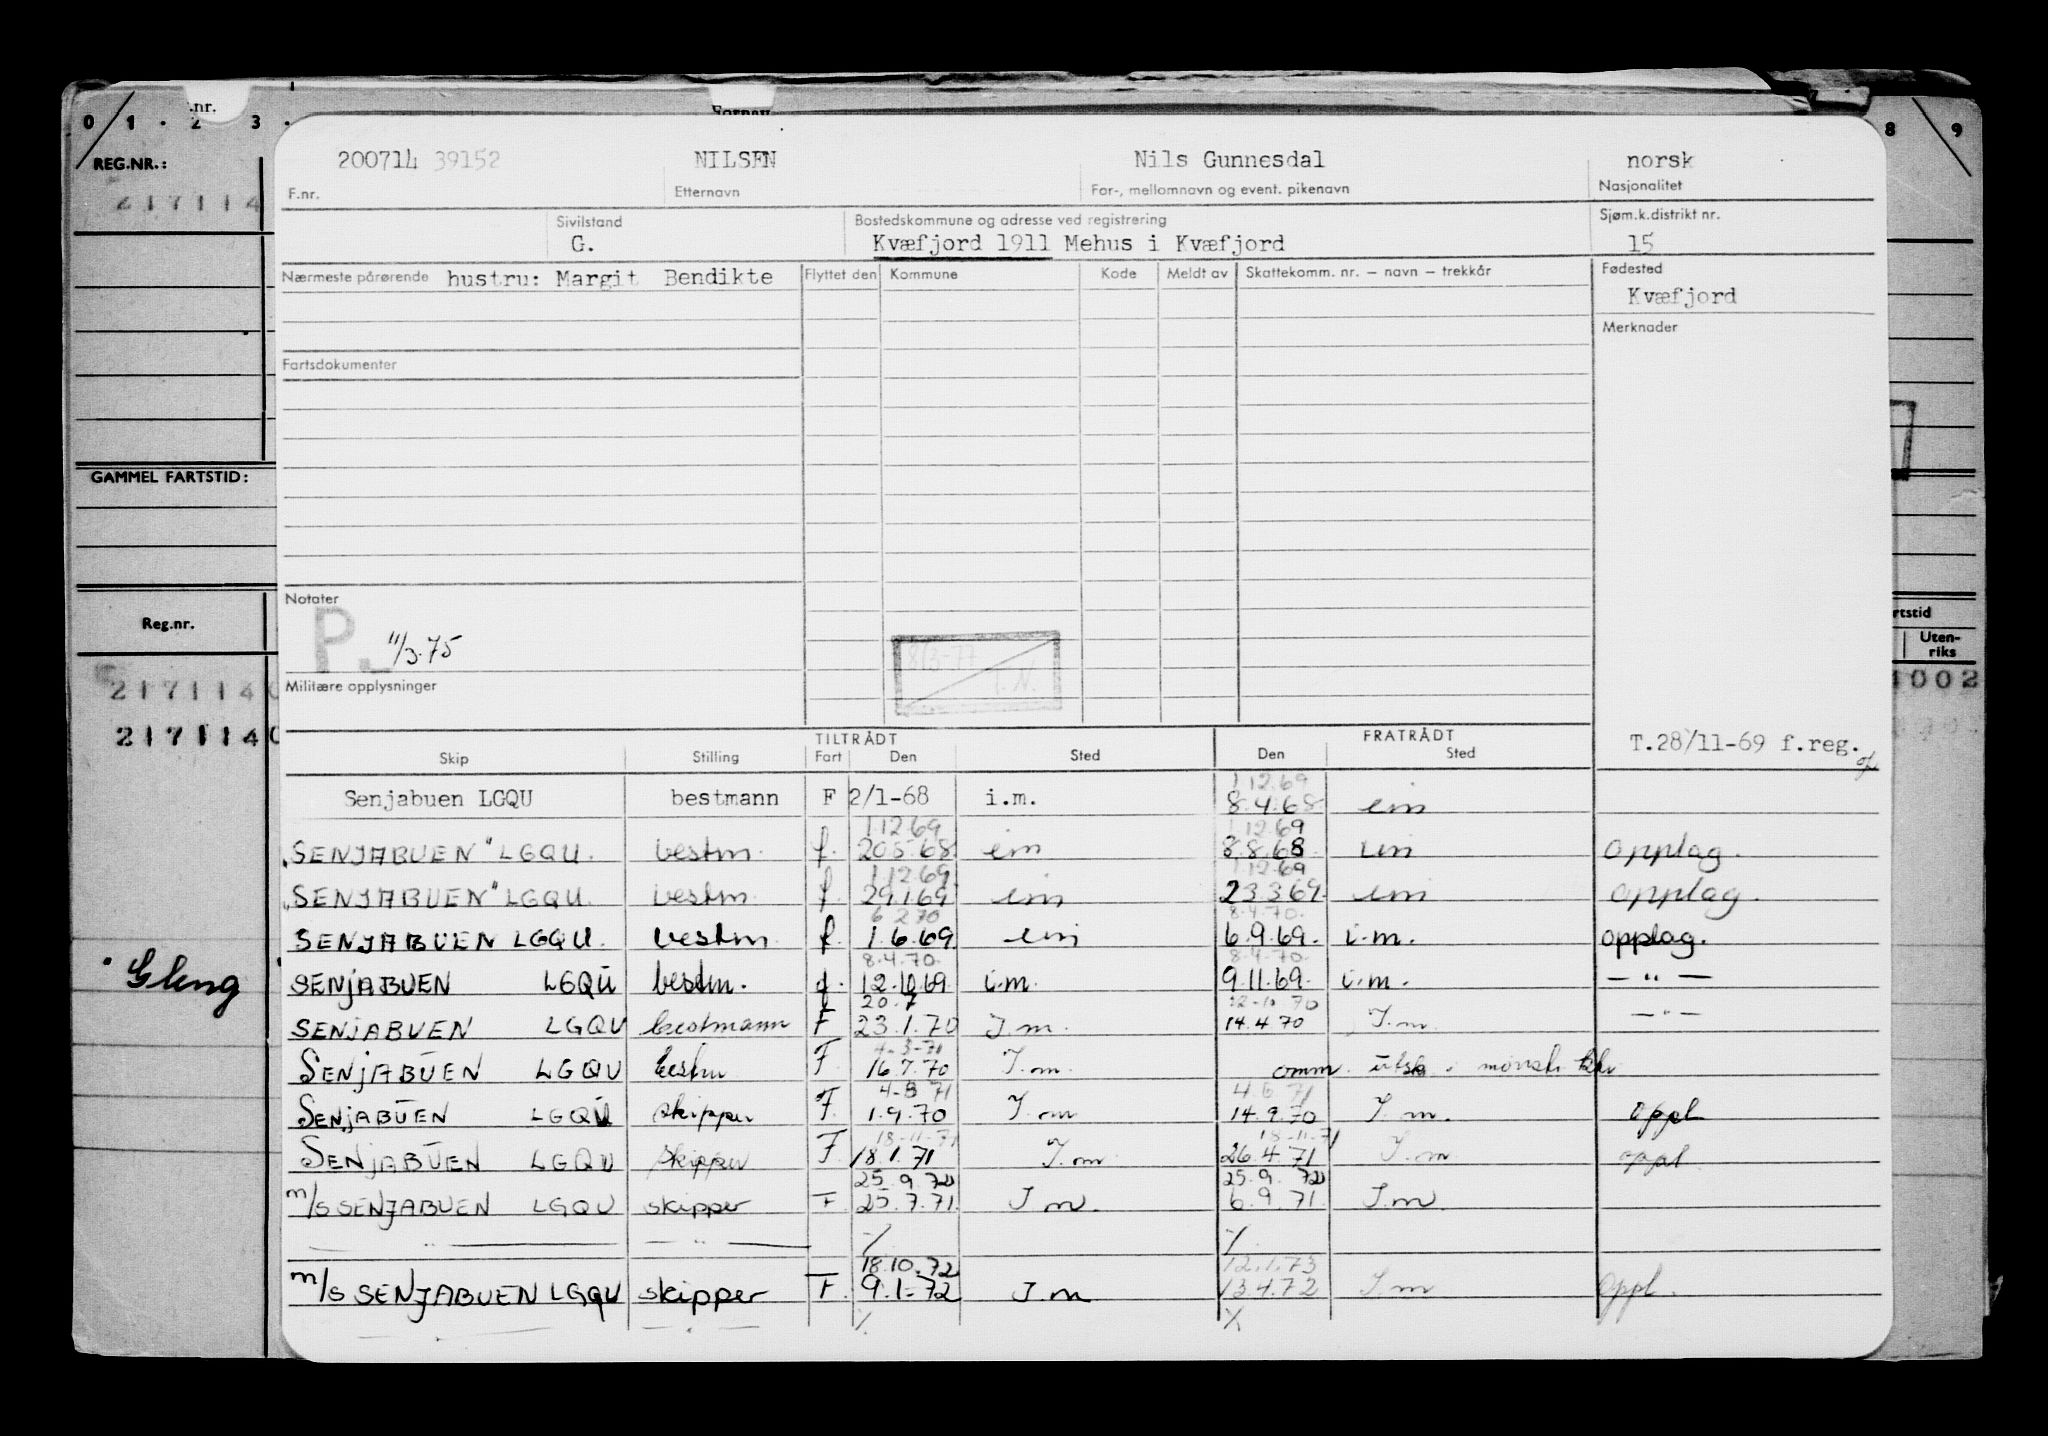 .nr.
0 1 . 2 3 .
8 9
REG.NR.:
217114
200714 39152 NILSEN Nils Gunnesdal norsk
F.nr. Etternavn For-, mellomnavn og event. pikenavn Nasjonalitet
Sivilstand Bostedskommune og adresse ved registrering Sjøm.k.distrikt nr.
G. Kvæfjord 1911 Mehus i Kvæfjord 15
Nærmeste pårørende hustru: Margit Bendikte Flyttet den Kommune Kode Meldt av Skattekomm. nr. – navn – trekkår Fødested
Kvæfjord
Merknader
Fartsdokumenter
GAMMEL FARTSTID:
Notater
P. 11/3.75
8/3-77
T.N.
Militære opplysninger
Reg.nr.
rtstid
Uten-
riks
217114
1002
217114
TILTRÅDT FRATRÅDT T.28/11-69 f.reg.
Skip Stilling Fart Den Sted Den Sted
1.12.69
Senjabuen LGQU bestmann F 2/1-68 i.m. 8.4.68 im
1.12.69 1.12.69
"SENJABUEN" LGQU. bestm. f. 20.5.68 im 8.8.68 im opplag.
1.12.69 1.12.69
"SENJABUEN" LGQU. bestm. f. 29.1.69 im 23.3.69. im opplag.
6.2.70 8.4.70.
SENJABUEN LGQU. bestm. f. 1.6.69. im 6.9.69. i.m. opplag.
8.4.70. 8.4.70.
SENJABUEN LGQU bestm. f. 12.10.69. i.m. 9.11.69. i.m. — " —
20.7 12-10 70
SENJABUEN LGQU bestmann F 23.1.70 I.m. 14.4.70 I.m. — " —
4-3-71
SENJABUEN LGQU bestm F. 16.7.70 I.m. omm.
4-5 71 4.5 71
SENJABUEN LGQU skipper F. 1.9.70 I.m 14.9.70 I.m. oppl
18-11-71 18-11-71
SENJABUEN LGQU skipper F. 18.1.71 I.m 26.4.71 I.m oppl
25.9.72 25.9.72
m/s SENJABUEN LGQU skipper F. 25.7.71. I.m. 6.9.71. I.m.
— " — — " — ./. ./.
18.10.72 12.1.73
m/s SENJABUEN LGQU skipper F. 9.1-72 I.m 13.4.72 I.m Oppl.
— " — — " — ./. ./.
"Gleng"